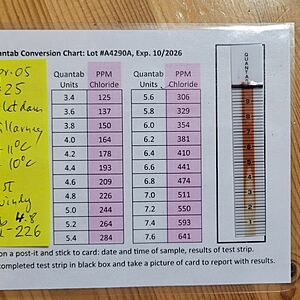 antab Conversion Chart: Lot #A4290A, Exp. 10/2026
Quantab Units PPM Chloride Quantab Units PPM Chloride
3.4 125 5.6 306
3.6 137 5.8 329
3.8 150 6.0 354
4.0 164 6.2 381
4.2 178 6.4 410
4.4 193 6.6 441
4.6 209 6.8 474
4.8 226 7.0 511
5.0 244 7.2 550
5.2 264 7.4 593
5.4 284 7.6 641
25
10°C
4.8
-226
QUANTAB
9
8
7
6
5
4
3
2
1
on a post-it and stick to card: date and time of sample, results of test strip.
completed test strip in black box and take a picture of card to report with results.